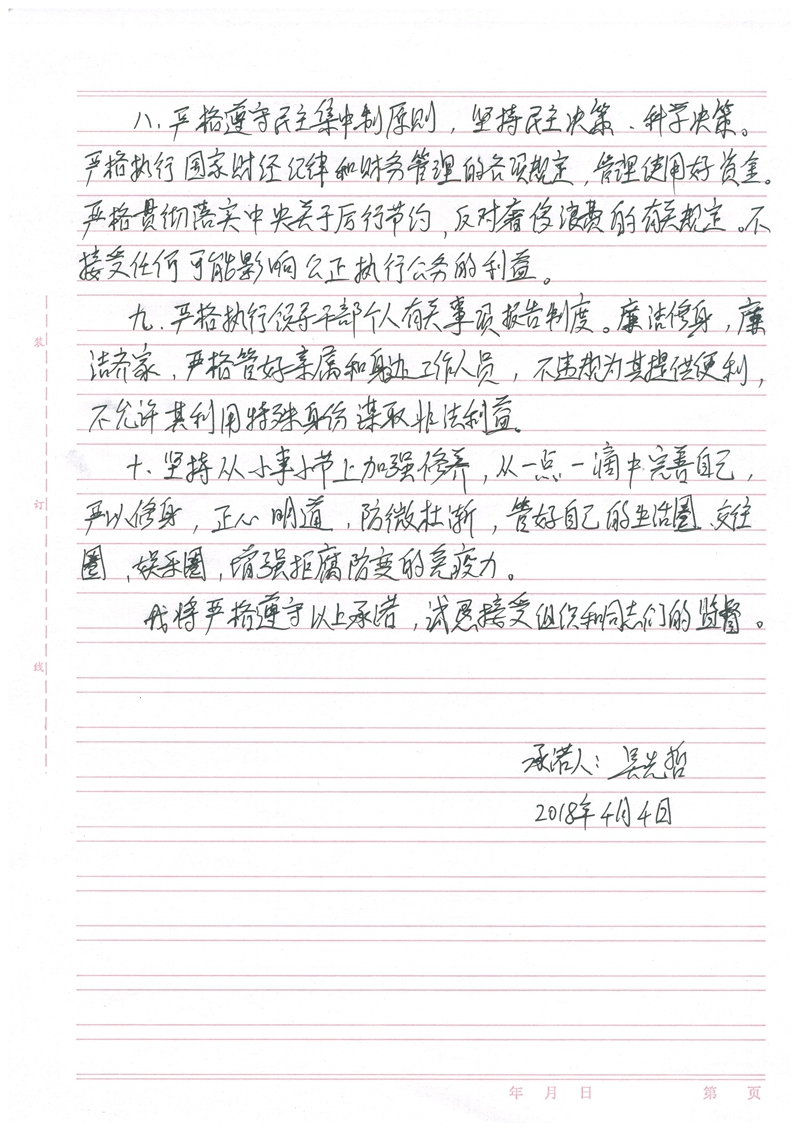 八、严格遵守民主集中制原则，坚持民主决策、科学决策。
严格执行国家财经纪律和财务管理的各项规定，管理使用好资金。
严格贯彻落实中央关于厉行节约，反对奢侈浪费的有关规定。不
接受任何可能影响公正执行公务的利益。
九、严格执行领导干部个人有关事项报告制度。廉洁修身，廉
洁齐家，严格管好亲属和身边工作人员，不违规为其提供便利，
不允许其利用特殊身份谋取非法利益。
十、坚持从小事小节上加强修养，从一点一滴中完善自己，
严以修身，正心明道，防微杜渐，管好自己的生活圈、交往
圈、娱乐圈，增强拒腐防变的免疫力。
我将严格遵守以上承诺，诚恳接受组织和同志们的监督。
承诺人：吴先哲
2018年4月4日
装
订
线
年 月 日
第 页